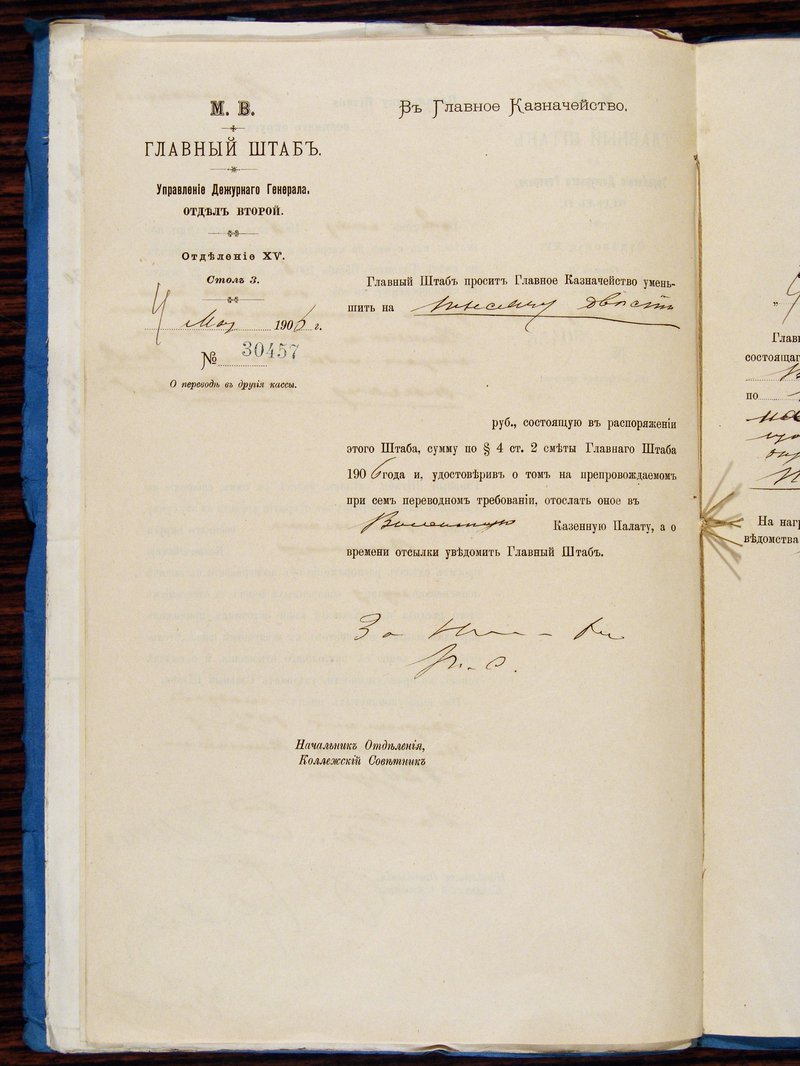 М. В.
ГЛАВНЫЙ ШТАБЪ.
Управленіе Дежурнаго Генерала.
ОТДѢЛЪ ВТОРОЙ.
Отдѣленіе XV.
Столъ 3.
4 Мая 1906 г.
№ 30457
О переводѣ въ другія кассы.
Въ Главное Казначейство.
Главный Штабъ проситъ Главное Казначейство умень-
шить на тысячу двѣсти
руб., состоящую въ распоряженіи
этого Штаба, сумму по § 4 ст. 2 смѣты Главнаго Штаба
1906 года и, удостовѣривъ о томъ на препровождаемомъ
при семъ переводномъ требованіи, отослать оное въ
Казенную Палату, а о
времени отсылки увѣдомить Главный Штабъ.
За
Начальникъ Отдѣленія,
Коллежскій Совѣтникъ
Главн
состоящаг
по
На нагр
вѣдомства